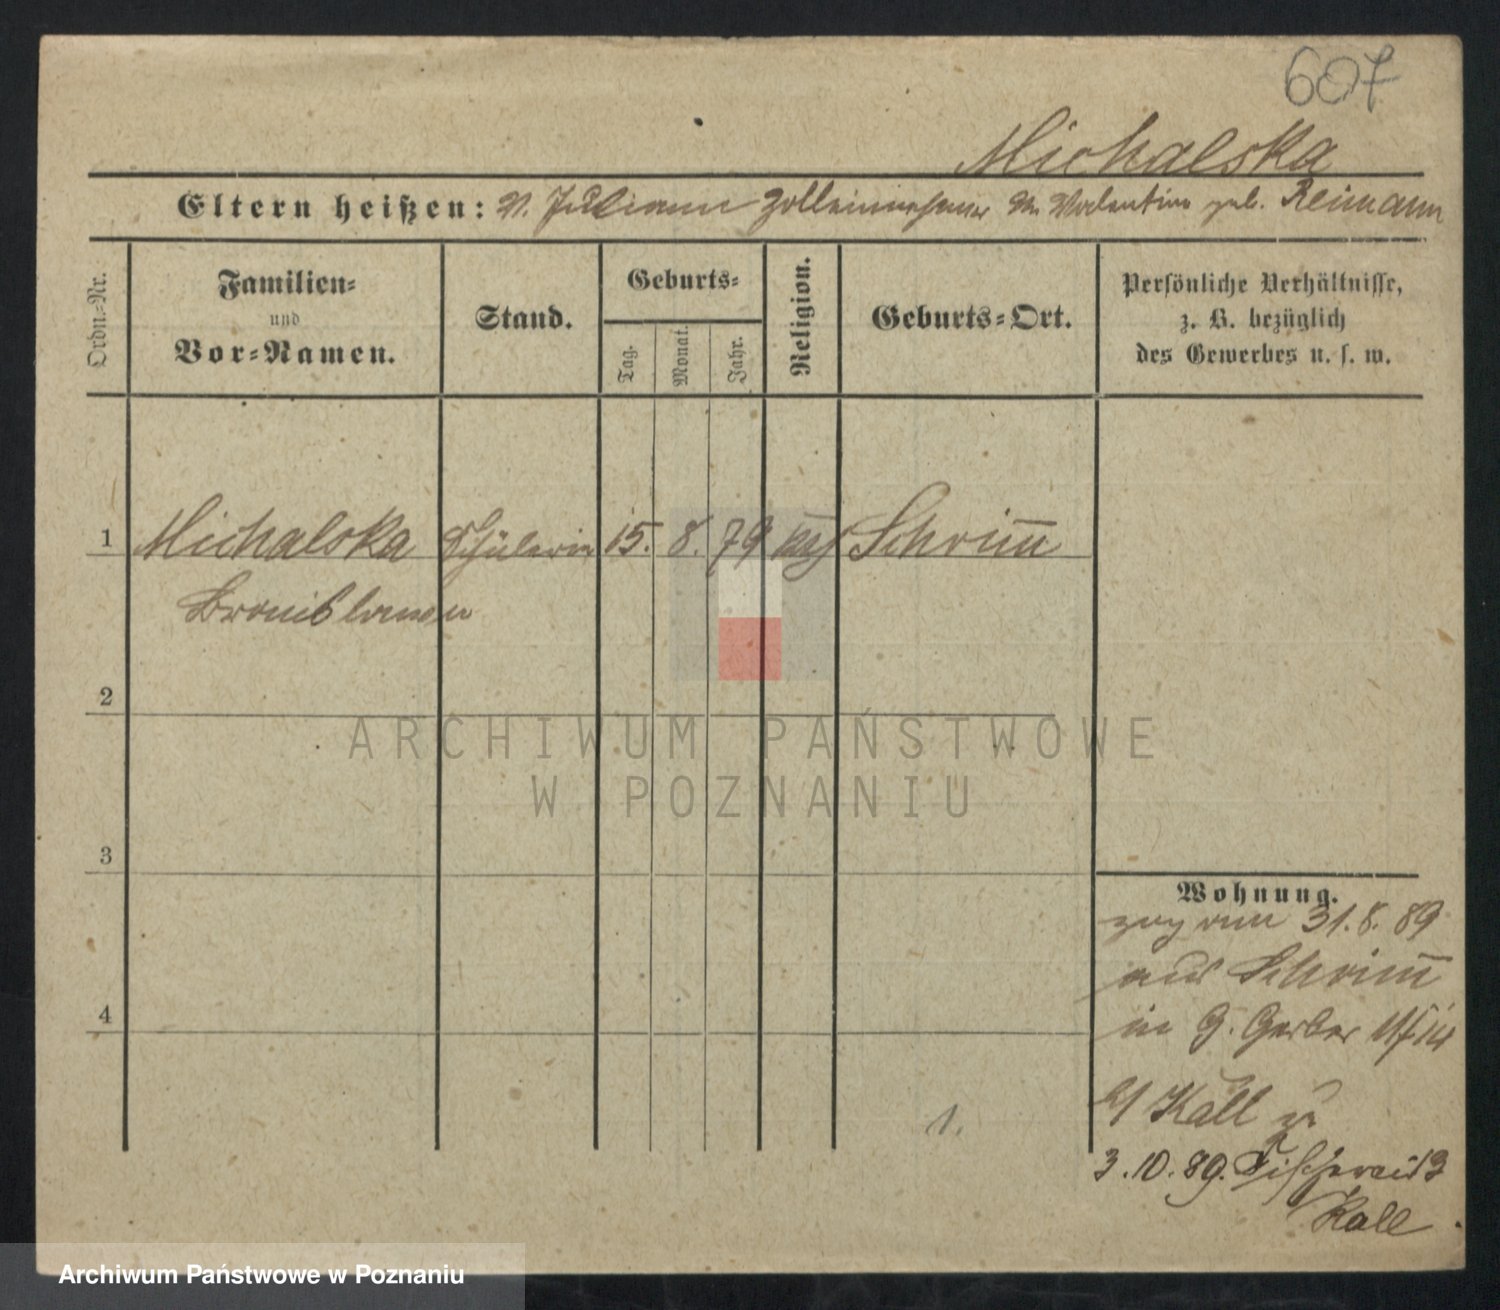 607
Michalska
Eltern heißen: V. Julian Zolleinnehmer M. Valentine geb. Reimann
Ordn=Nr.
Familien=
und
Vor=Namen.
Stand.
Geburts=
Tag.
Monat.
Jahr.
Religion.
Geburts=Ort.
Persönliche Verhältnisse,
z. B. bezüglich
des Gewerbes u. s. w.
1 Michalska Schülerin 15. 8. 79 Schrimm
Bronislawa
2
3
4
ARCHIWUM PAŃSTWOWE
W POZNANIU
Wohnung.
zog am 31.8.89
aus Schrimm
in G. Gerber
b/ Kall
3.10.89. Fischerei 13
Kall
1.
Archiwum Państwowe w Poznaniu